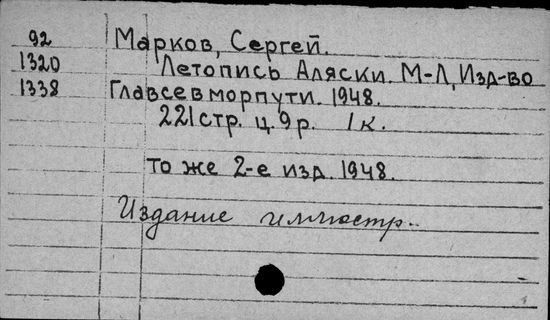 92 Марков, Сергей.
1320 Летопись Аляски. М-Л, Изд-во
1338 Главсевморпути. 1948.
221 стр. ц. 9 р. 1 к.
то же 2-е изд. 1948.
Издание иллюстр.